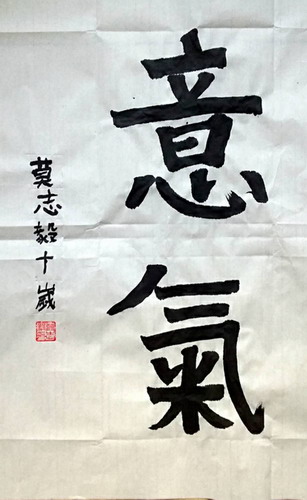 意氣
莫志毅十歲